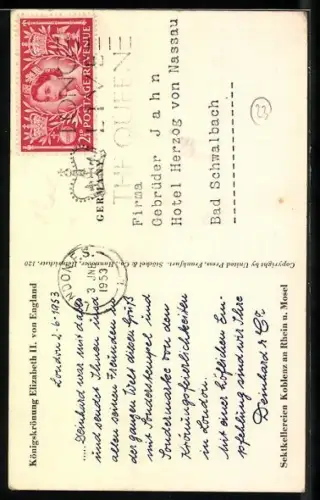 Königskrönung Elizabeth II. von England
London 2.6.1953
..... Deinhard war mit dabei
und sendet Ihnen und
allen seinen Freunden in
der ganzen Welt diesen Gruß
mit Sonderstempel und
Sondermarke von den
Krönungsfeierlichkeiten
in London.
Mit einer höflichen Em-
pfehlung sind wir Ihre
Deinhard & Co
Sektkellereien Koblenz an Rhein u. Mosel
Copyright by United Press, Frankfurt.
LONDON
S.
3 JNE
1953
POSTAGE REVENUE
LONG LIVE
THE QUEEN
GERMANY
Firma
Gebrüder Jahn
Hotel Herzog von Nassau
Bad Schwalbach
23